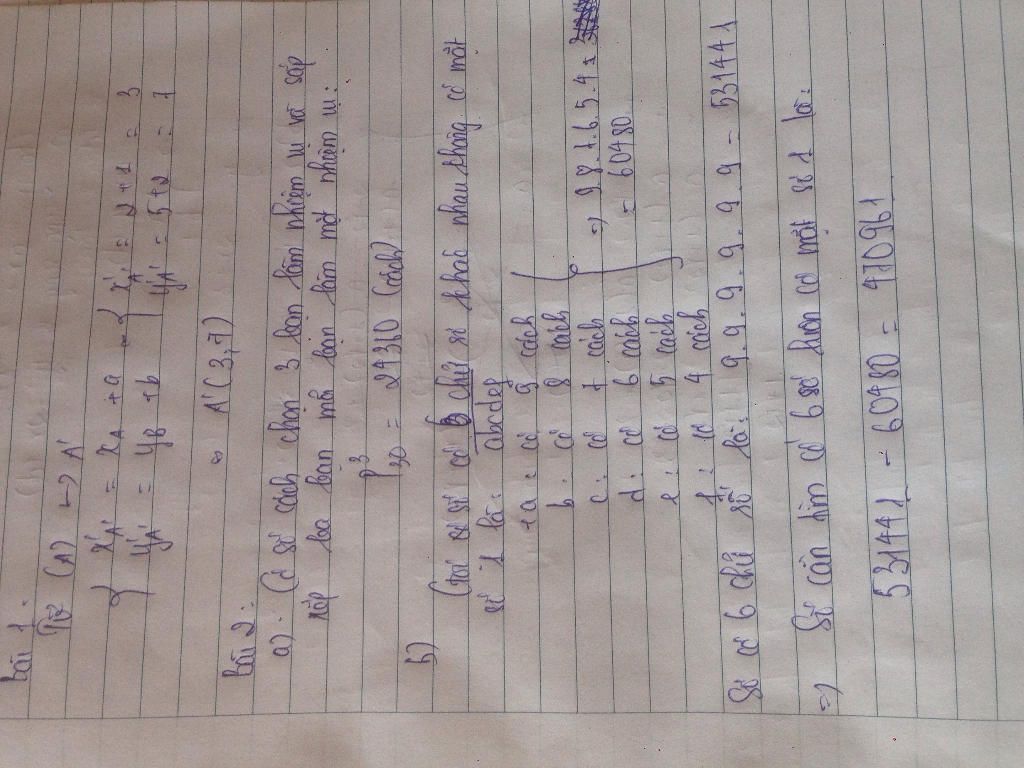 Bài 1:
Tv (A) → A'
{ x'A' = xA + a { x'A' = 2+1 = 3
y'A' = yB + b y'A' = 5+2 = 7
A' (3,7)
Bài 2:
a) Có số cách chọn 3 bạn làm nhiệm vụ và sắp
xếp ba bạn mỗi bạn làm một nhiệm vụ:
P³30 = 24360 (cách)
b) Gọi số có 6 chữ số khác nhau không có mặt
số 1 là: abcdef
+a: có 9 cách
b: có 8 cách
c: có 7 cách
d: có 6 cách
e: có 5 cách
f: có 4 cách
=> 9.8.7.6.5.4
= 60480
Số có 6 chữ số là: 9.9.9.9.9.9 = 531441
=> Số cần tìm có 6 số luôn có mặt số 1 là:
531441 - 60480 = 470961